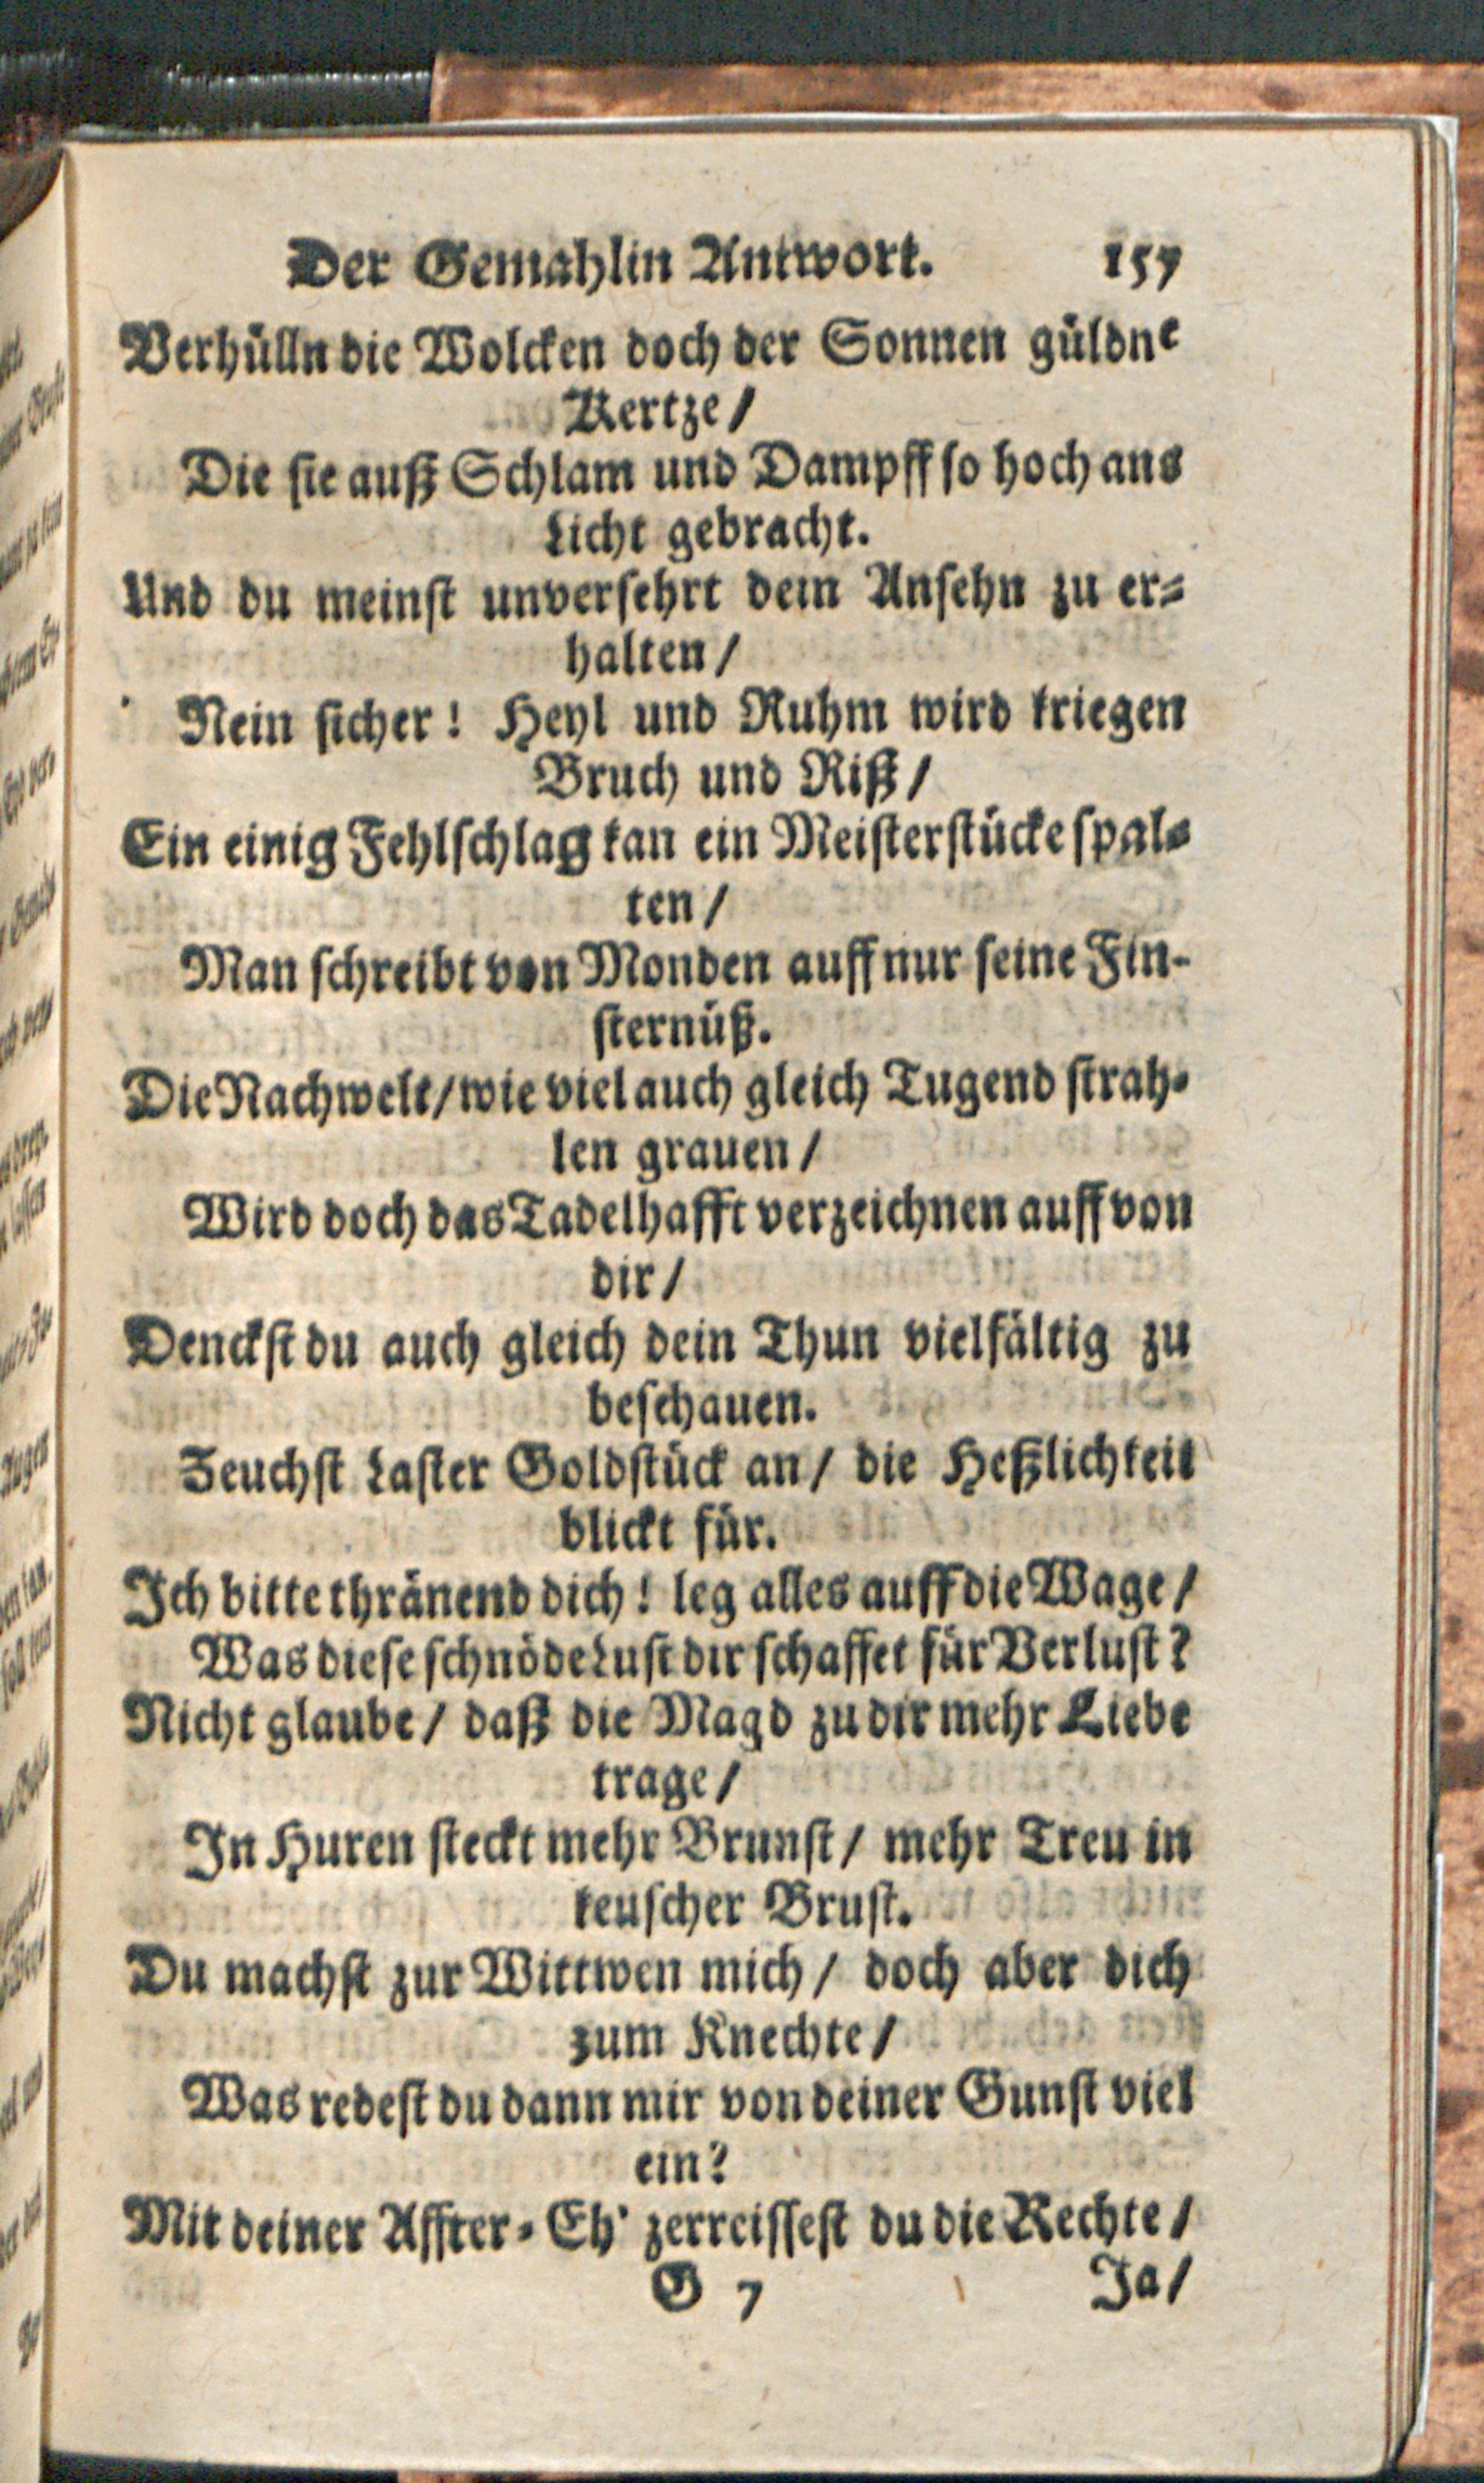 Der Gemahlin Antwort. 157
Verhülln die Wolcken doch der Sonnen güldne
Kertze/
Die sie auß Schlam und Dampff so hoch ans
Licht gebracht.
Und du meinst unversehrt dein Ansehn zu er-
halten/
Nein sicher! Heyl und Ruhm wird kriegen
Bruch und Riß/
Ein einig Fehlschlag kan ein Meisterstücke spal-
ten/
Man schreibt von Monden auff nur seine Fin-
sternüß.
Die Nachwelt/wie viel auch gleich Tugend strah-
len grauen/
Wird doch das Tadelhafft verzeichnen auff von
dir/
Denckst du auch gleich dein Thun vielfältig zu
beschauen.
Zeuchst Laster Goldstück an/ die Heßlichkeit
blickt für.
Ich bitte thränend dich! leg alles auff die Wage/
Was diese schnöde Lust dir schaffet für Verlust?
Nicht glaube/ daß die Magd zu dir mehr Liebe
trage/
In Huren steckt mehr Brunst/ mehr Treu in
keuscher Brust.
Du machst zur Wittwen mich/ doch aber dich
zum Knechte/
Was redest du dann mir von deiner Gunst viel
ein?
Mit deiner Affter-Eh' zerreissest du die Rechte/
G 7 Ja/